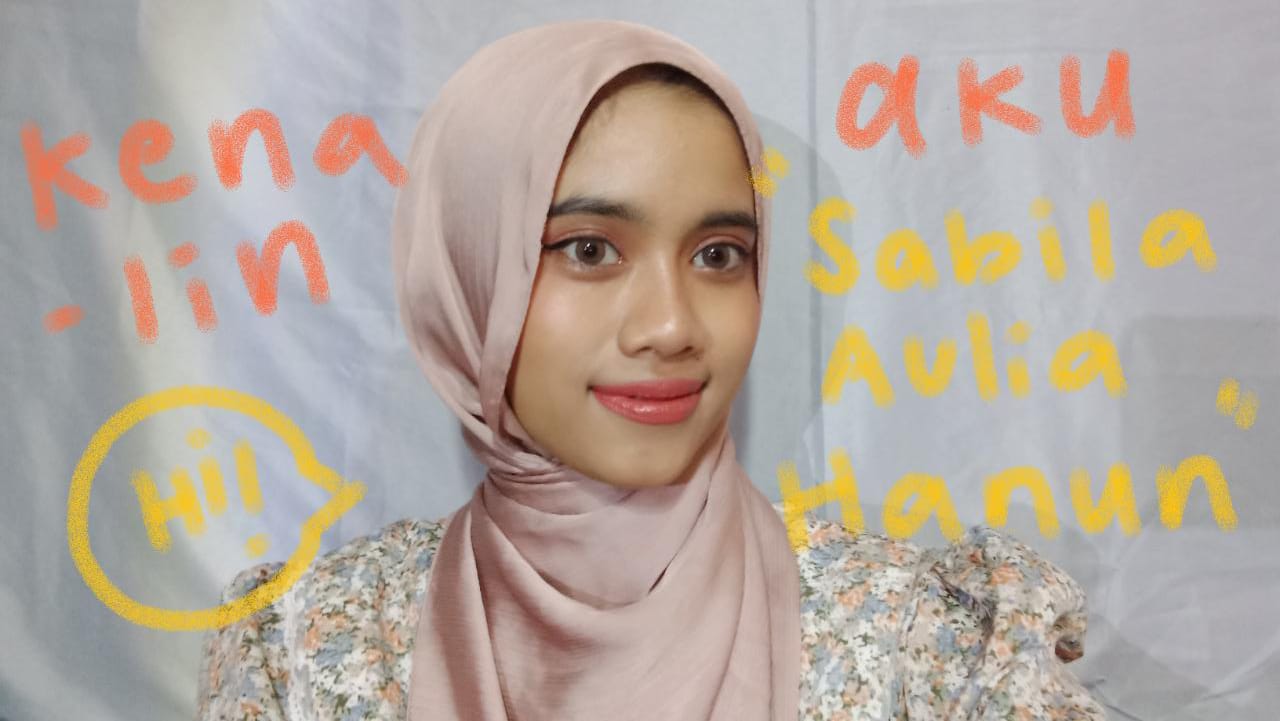 kena
-lin
Hi!
aku
"Sabila
Aulia
Hanun"